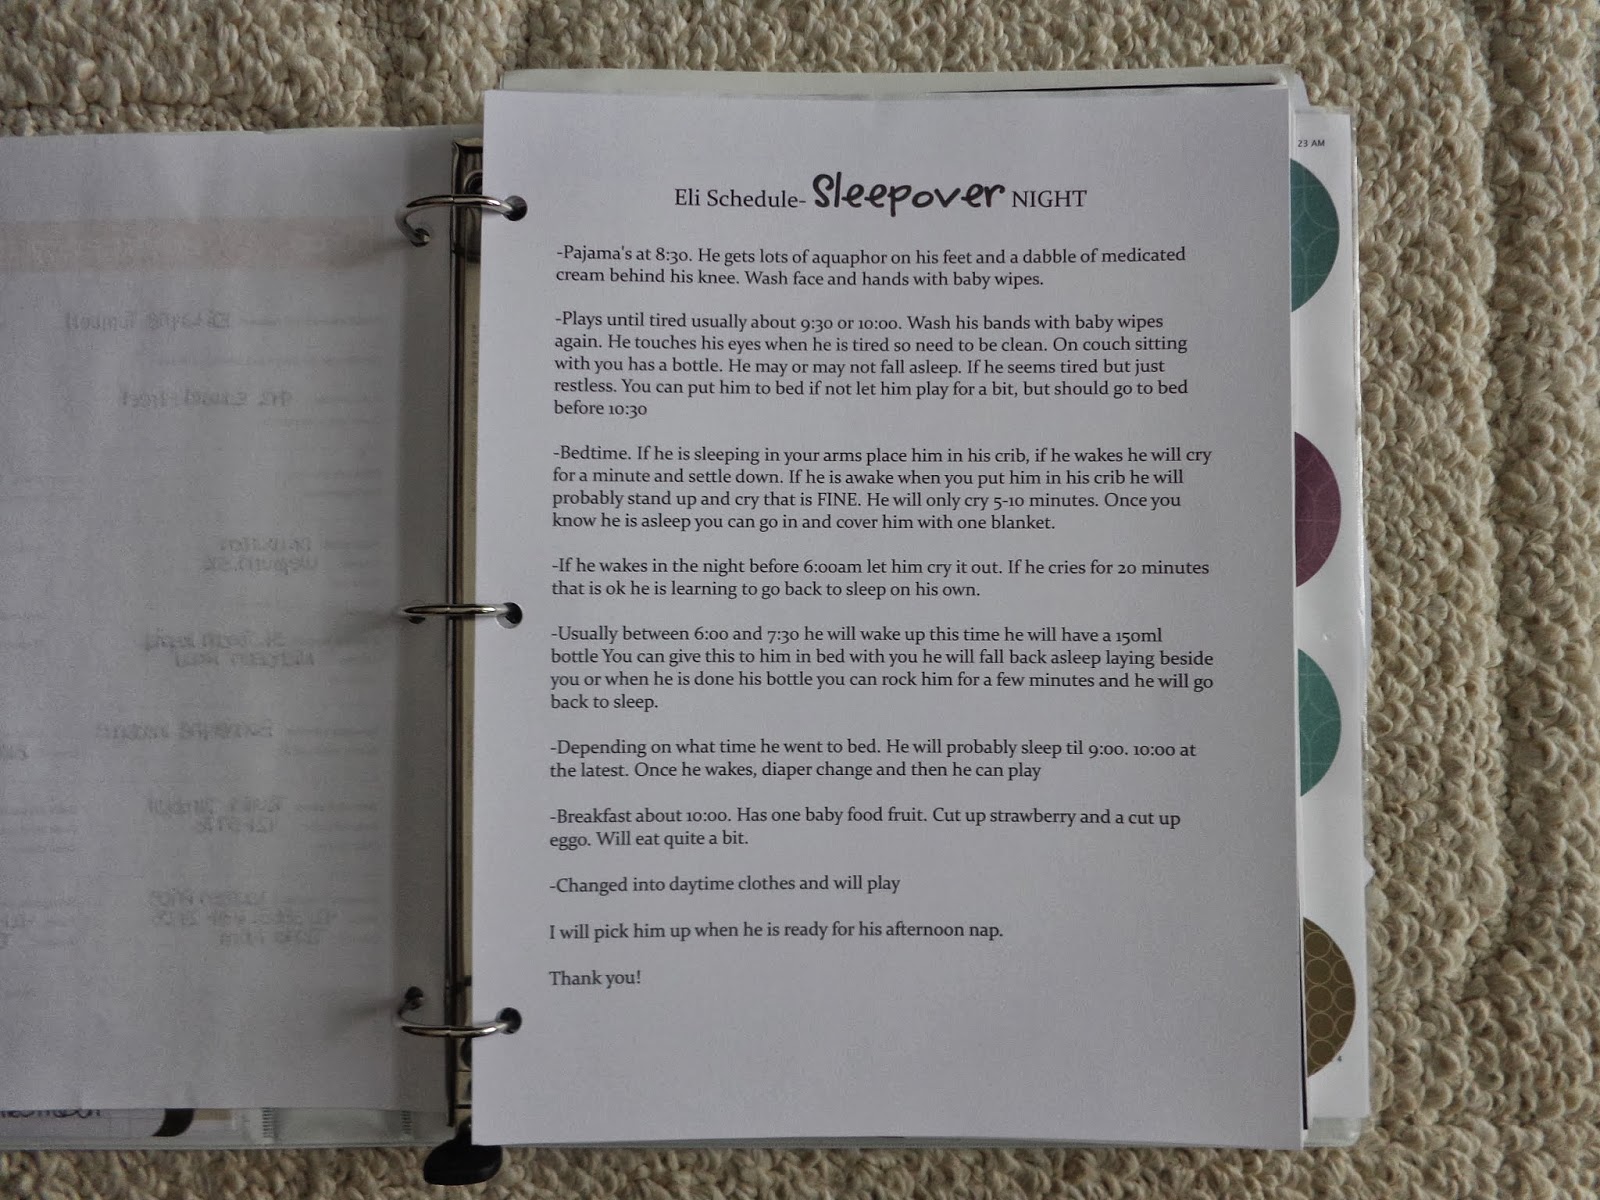 23 AM
Eli Schedule- Sleepover NIGHT
-Pajama's at 8:30. He gets lots of aquaphor on his feet and a dabble of medicated
cream behind his knee. Wash face and hands with baby wipes.
-Plays until tired usually about 9:30 or 10:00. Wash his bands with baby wipes
again. He touches his eyes when he is tired so need to be clean. On couch sitting
with you has a bottle. He may or may not fall asleep. If he seems tired but just
restless. You can put him to bed if not let him play for a bit, but should go to bed
before 10:30
-Bedtime. If he is sleeping in your arms place him in his crib, if he wakes he will cry
for a minute and settle down. If he is awake when you put him in his crib he will
probably stand up and cry that is FINE. He will only cry 5-10 minutes. Once you
know he is asleep you can go in and cover him with one blanket.
-If he wakes in the night before 6:00am let him cry it out. If he cries for 20 minutes
that is ok he is learning to go back to sleep on his own.
-Usually between 6:00 and 7:30 he will wake up this time he will have a 150ml
bottle You can give this to him in bed with you he will fall back asleep laying beside
you or when he is done his bottle you can rock him for a few minutes and he will go
back to sleep.
-Depending on what time he went to bed. He will probably sleep til 9:00. 10:00 at
the latest. Once he wakes, diaper change and then he can play
-Breakfast about 10:00. Has one baby food fruit. Cut up strawberry and a cut up
eggo. Will eat quite a bit.
-Changed into daytime clothes and will play
I will pick him up when he is ready for his afternoon nap.
Thank you!